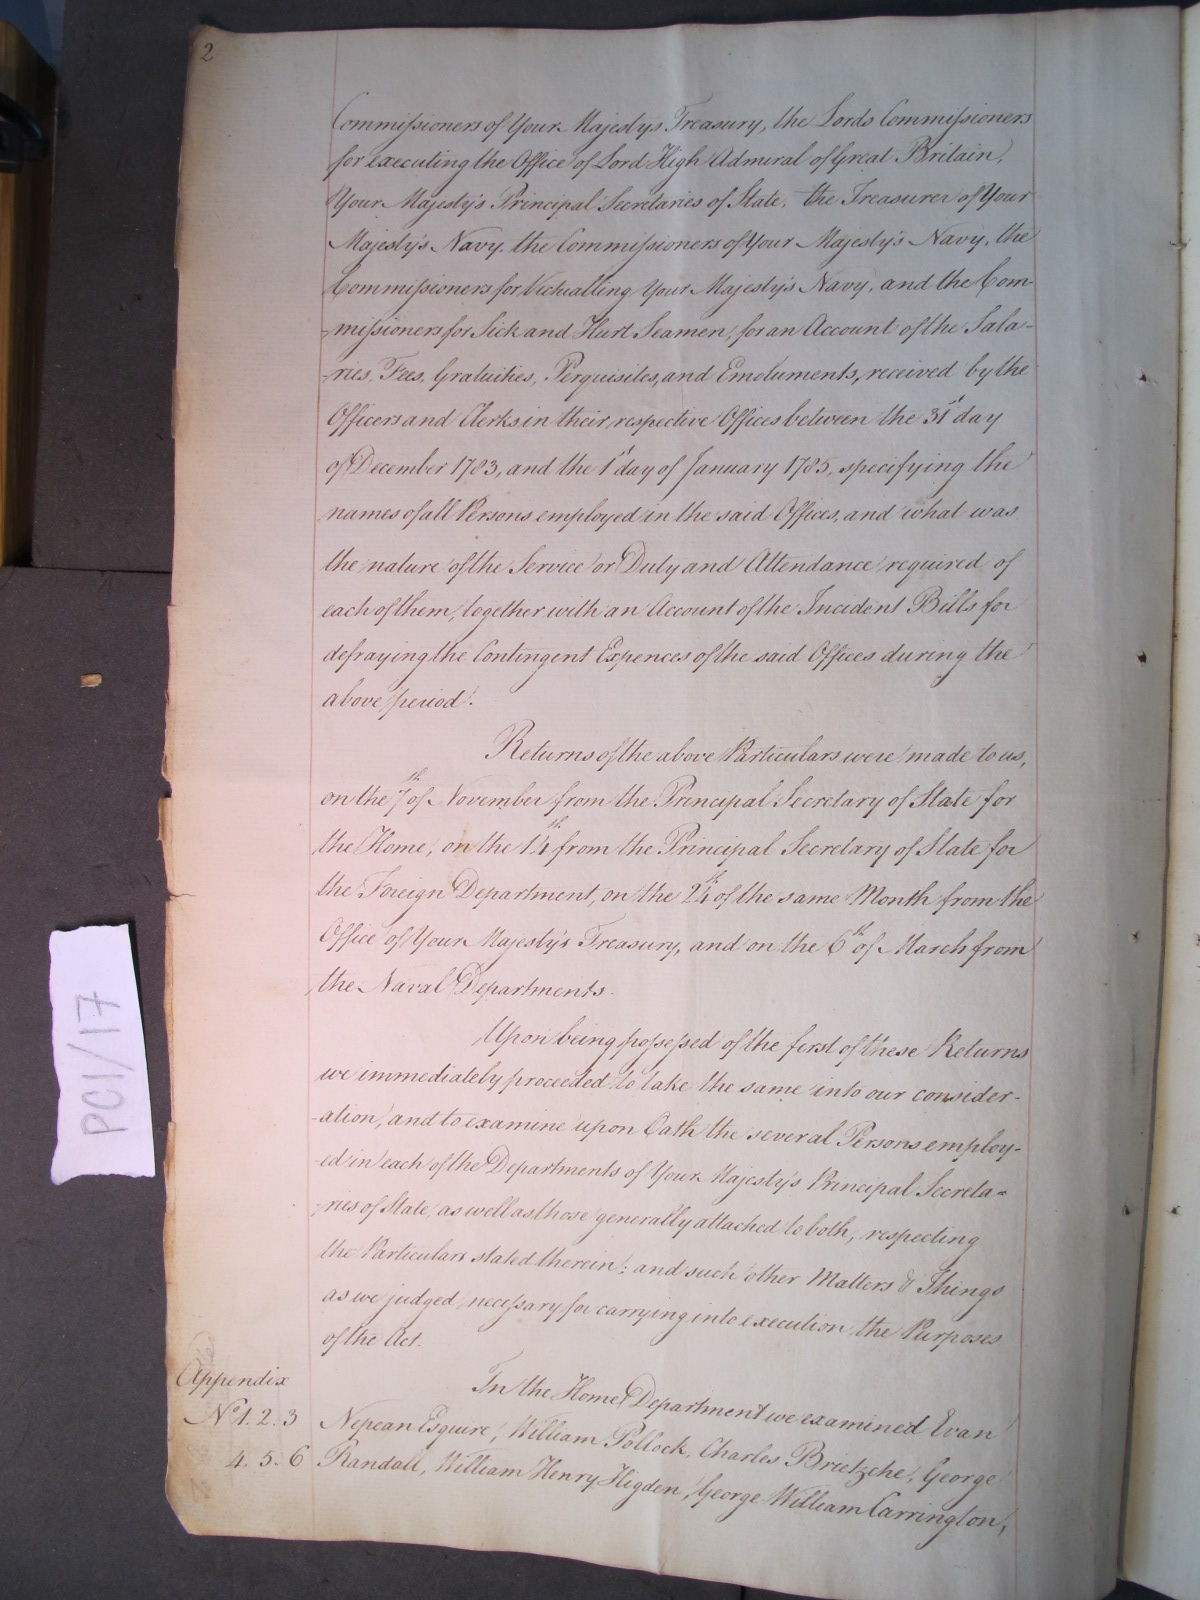 2
Commissioners of Your Majestys Treasury, the Lords Commissioners
for executing the Office of Lord High Admiral of Great Britain,
Your Majesty's Principal Secretaries of State, the Treasurer of Your
Majesty's Navy, the Commissioners of Your Majesty's Navy, the
Commissioners for Victualling Your Majesty's Navy, and the Com-
-missioners for Sick and Hurt Seamen, for an Account of the Sala-
-ries, Fees, Gratuities, Perquisites, and Emoluments, received by the
Officers and Clerks in their respective Offices between the 31st day
of December 1783, and the 1st day of January 1785, specifying the
names of all Persons employed in the said Offices, and what was
the nature of the Service or Duty and Attendance required of
each of them, together with an Account of the Incident Bills for
defraying the Contingent Expences of the said Offices during the
above period.
Returns of the above Particulars were made to us,
on the 7th of November from the Principal Secretary of State for
the Home, on the 14th from the Principal Secretary of State for
the Foreign Department, on the 24th of the same Month from the
Office of Your Majesty's Treasury, and on the 6th of March from
the Naval Departments.
Upon being possessed of the first of these Returns
we immediately proceeded to take the same into our consider-
-ation, and to examine upon Oath the several Persons employ-
-ed in each of the Departments of Your Majesty's Principal Secreta=
-ries of State, as well as those generally attached to both, respecting
the Particulars stated therein; and such other Matters & Things
as we judged necessary for carrying into execution the Purposes
of the Act.
Appendix
No 1. 2. 3
4. 5. 6
In the Home Department we examined Evan
Nepean Esquire, William Pollock, Charles Brietzcke, George
Randall, William Henry Higden, George William Carrington,
PC1/17